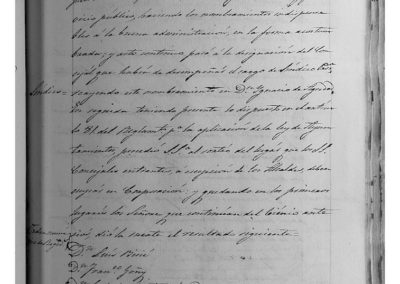 vicio publico, haciendo los nombramientos indispensa-
bles á la buena administracion, en la forma acostum-
brada; y acto continuo pasó á la designacion del Con-
cejal que habia de desempeñar el cargo de Síndico
Síndico = recayendo este nombramiento en Dn. Ignacio de
En seguida teniendo presente lo dispuesto en el artícu-
lo 31 del Reglamto. pa. la aplicacion de la ley de Ayun-
tamientos, procedió S.Sa. al sorteo del lugar que los SS.
Concejales entrantes, á escepcion de los Alcaldes, deben
ocupar en Corporacion; y quedando en los primeros
lugares los Señores que continúan del bienio ante-
rior, dió la suerte el resultado siguiente =
Dn. Luis
Dn. Franco. Goñy